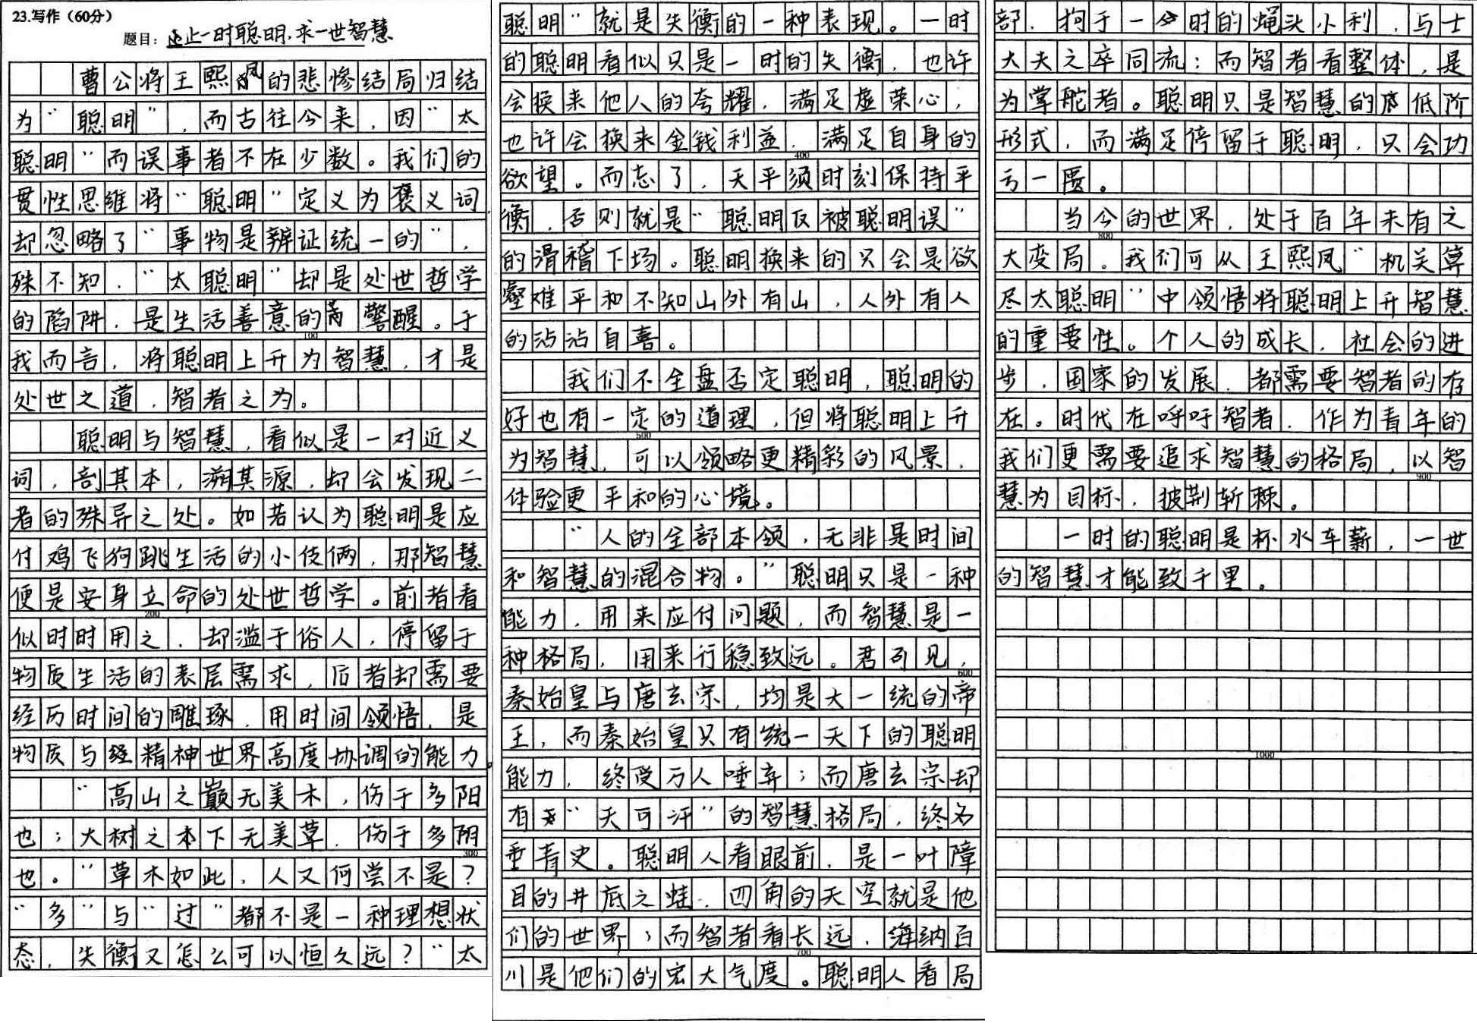 23.写作（60分）
题目：止一时聪明,求一世智慧
曹公将王熙凤的悲惨结局归结
为“聪明”，而古往今来，因“太
聪明”而误事者不在少数。我们的
贯性思维将“聪明”定义为褒义词，
却忽略了“事物是辨证统一的”，
殊不知，“太聪明”却是处世哲学
的陷阱，是生活善意的警醒。于
100
我而言，将聪明上升为智慧，才是
处世之道，智者之为。
聪明与智慧，看似是一对近义
词，剖其本，溯其源，却会发现二
者的殊异之处。如若认为聪明是应
付鸡飞狗跳生活的小伎俩，那智慧
便是安身立命的处世哲学。前者看
200
似时时用之，却滥于俗人，停留于
物质生活的表层需求，后者却需要
经历时间的雕琢，用时间领悟，是
物质与精神世界高度协调的能力。
“高山之巅无美木，伤于多阳
也；大树之本下无美草，伤于多阴
300
也。”草木如此，人又何尝不是？
“多”与“过”都不是一种理想状
态，失衡又怎么可以恒久远？“太
聪明”就是失衡的一种表现。一时
的聪明看似只是一时的失衡，也许
会换来他人的夸耀，满足虚荣心，
也许会换来金钱利益，满足自身的
400
欲望。而忘了，天平须时刻保持平
衡，否则就是“聪明反被聪明误”
的滑稽下场。聪明换来的只会是欲
壑难平和不知山外有山，人外有人
的沾沾自喜。
我们不全盘否定聪明，聪明的
好也有一定的道理，但将聪明上升
500
为智慧，可以领略更精彩的风景，
体验更平和的心境。
“人的全部本领，无非是时间
和智慧的混合物。”聪明只是一种
能力，用来应付问题，而智慧是一
种格局，用来行稳致远。君可见，
600
秦始皇与唐玄宗，均是大一统的帝
王，而秦始皇只有统一天下的聪明
能力，终受万人唾弃；而唐玄宗却
有“天可汗”的智慧格局，终名
垂青史。聪明人看眼前，是一叶障
目的井底之蛙，四角的天空就是他
们的世界；而智者看长远，海纳百
700
川是他们的宏大气度。聪明人看局
部，拘于一时的蝇头小利，与士
大夫之卒同流；而智者看整体，是
为掌舵者。聪明只是智慧的低阶
形式，而满足停留于聪明，只会功
亏一匮。
当今的世界，处于百年未有之
800
大变局。我们可从王熙凤“机关算
尽太聪明”中领悟将聪明上升智慧
的重要性。个人的成长，社会的进
步，国家的发展，都需要智者的存
在。时代在呼吁智者，作为青年的
我们更需要追求智慧的格局，以智
900
慧为目标，披荆斩棘。
一时的聪明是杯水车薪，一世
的智慧才能致千里。
1000